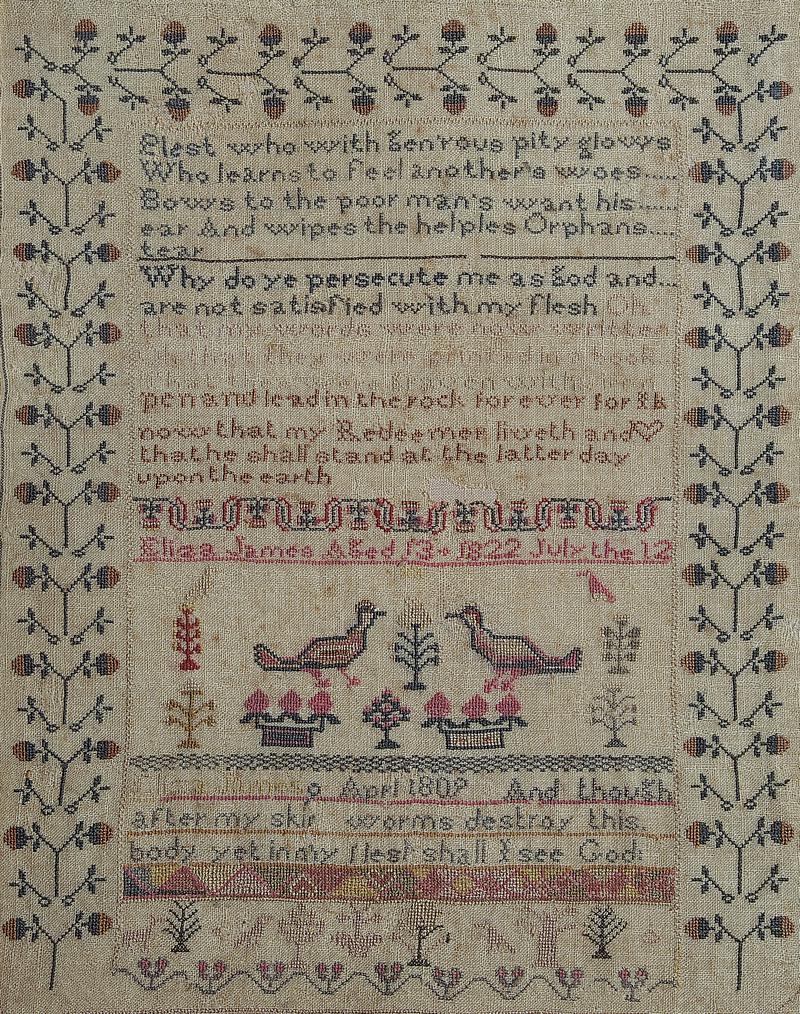 Blest who with Gen'rous pity glows
Who learns to feel another's woes......
Bows to the poor man's want his......
ear And wipes the helples Orphans....
tear
Why do ye persecute me as God and...
are not satisfied with my flesh Oh
that my words were now written
Oh that they were printed in a book..
graven with
pen and lead in the rock for ever for I k
now that my Redeemer liveth and
that he shall stand at the latter day
upon the earth
Eliza James Aged 13 1822 July the 12
9 Aprl 1809 And though
after my skin worms destroy this
body yet in my flesh shall I see God: